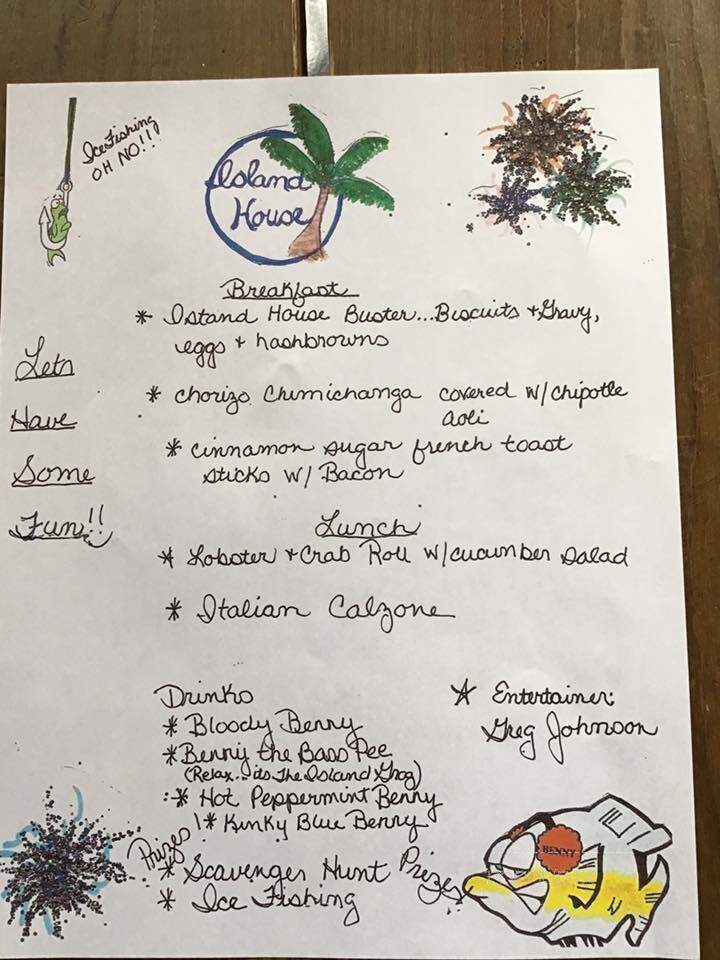 Ice Fishing
OH NO!!!
Island
House
Breakfast
* Island House Buster...Biscuits + Gravy,
eggs + hashbrowns
* chorizo Chimichanga covered w/chipotle
aoli
* cinnamon sugar french toast
sticks w/ Bacon
Lets
Have
Some
Fun!!
Lunch
* Lobster + Crab Roll w/cucumber salad
* Italian Calzone
Drinks
* Bloody Benny
* Benny the Bass Pee
(Relax...its The Island Grog)
* Hot Peppermint Benny
* Kinky Blue Benny
* Entertainer:
Greg Johnson
Prizes
* Scavenger Hunt Prizes
* Ice Fishing
BENNY